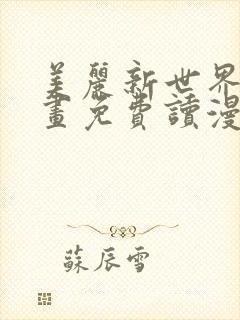 美麗新世界
畫免費讀漫
蘇辰雪